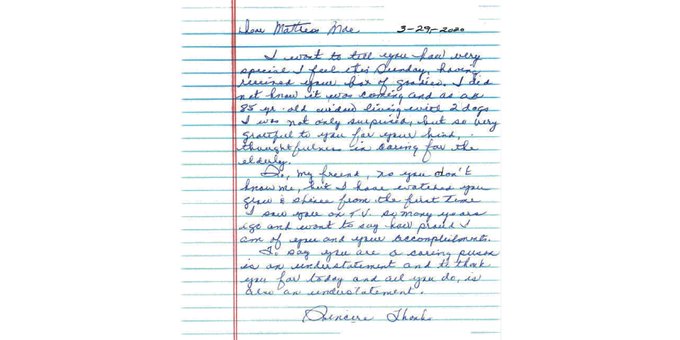 Dear Matthew Mac 3-29-2020
I want to tell you how very
special I feel this Sunday, having
received your box of goodies. I did
not know it was coming and as an
85 yr. old widow living with 2 dogs
I was not only surprised, but so very
grateful to you for your kind,
thoughtfulness in caring for the
elderly.
So, my friend, as you don't
know me, but I have watched you
grow & shine from the first time
I saw you on T.V. so many years
ago and want to say how proud I
am of you and your accomplishments.
To say you are a caring person
is an understatement and to thank
you for today and all you do, is
also an understatement.
Sincere Thanks